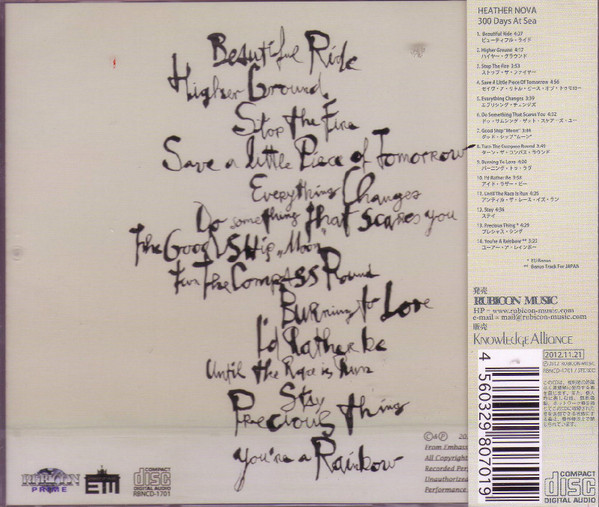 Beautiful Ride
Higher Ground
Stop the Fire
Save a little Piece of Tomorrow
Everything Changes
Do something that scares you
The Good Ship "Moon"
Turn The Compass Round
Burning to Love
I'd Rather be
Until the Race is Run
Stay
Precious Thing
you're a Rainbow
RUBICON
PRIME
EM
COMPACT
disc
DIGITAL AUDIO
RBNCD-1701
All Copyright
Recorded Per
Unauthorized
Performance
HEATHER NOVA
300 Days At Sea
1. Beautiful Ride 4:27
ビューティフル・ライド
2. Higher Ground 4:12
ハイヤー・グラウンド
3. Stop The Fire 3:53
ストップ・ザ・ファイヤー
4. Save A Little Piece Of Tomorrow 4:56
セイヴ・ア・リトル・ピース・オブ・トゥモロー
5. Everything Changes 3:39
エブリシング・チェンジズ
6. Do Something That Scares You 4:52
ドゥ・サムシング・ザット・スケアーズ・ユー
7. Good Ship "Moon" 3:44
グッド・シップ "ムーン"
8. Turn The Compass Round
ターン・ザ・コンパス・ラウンド
9. Burning To Love
バーニング・トゥ・ラヴ
10. I'd Rather Be
アイド・ラザー・ビー
11. Until The Race Is Run
アンティル・ザ・レース・イズ・ラン
12. Stay
ステイ
13. Precious Thing *
プレシャス・シング
14. You're A Rainbow **
ユーアー・ア・レインボー
** Bonus Track For JAPAN
発売
RUBICON MUSIC
HP = www.rubicon-music.com
e-mail = mail@rubicon-music.com
販売
KNOWLEDGE ALLIANCE
2012.11.21
4 560329 807019
COMPACT
disc
DIGITAL AUDIO